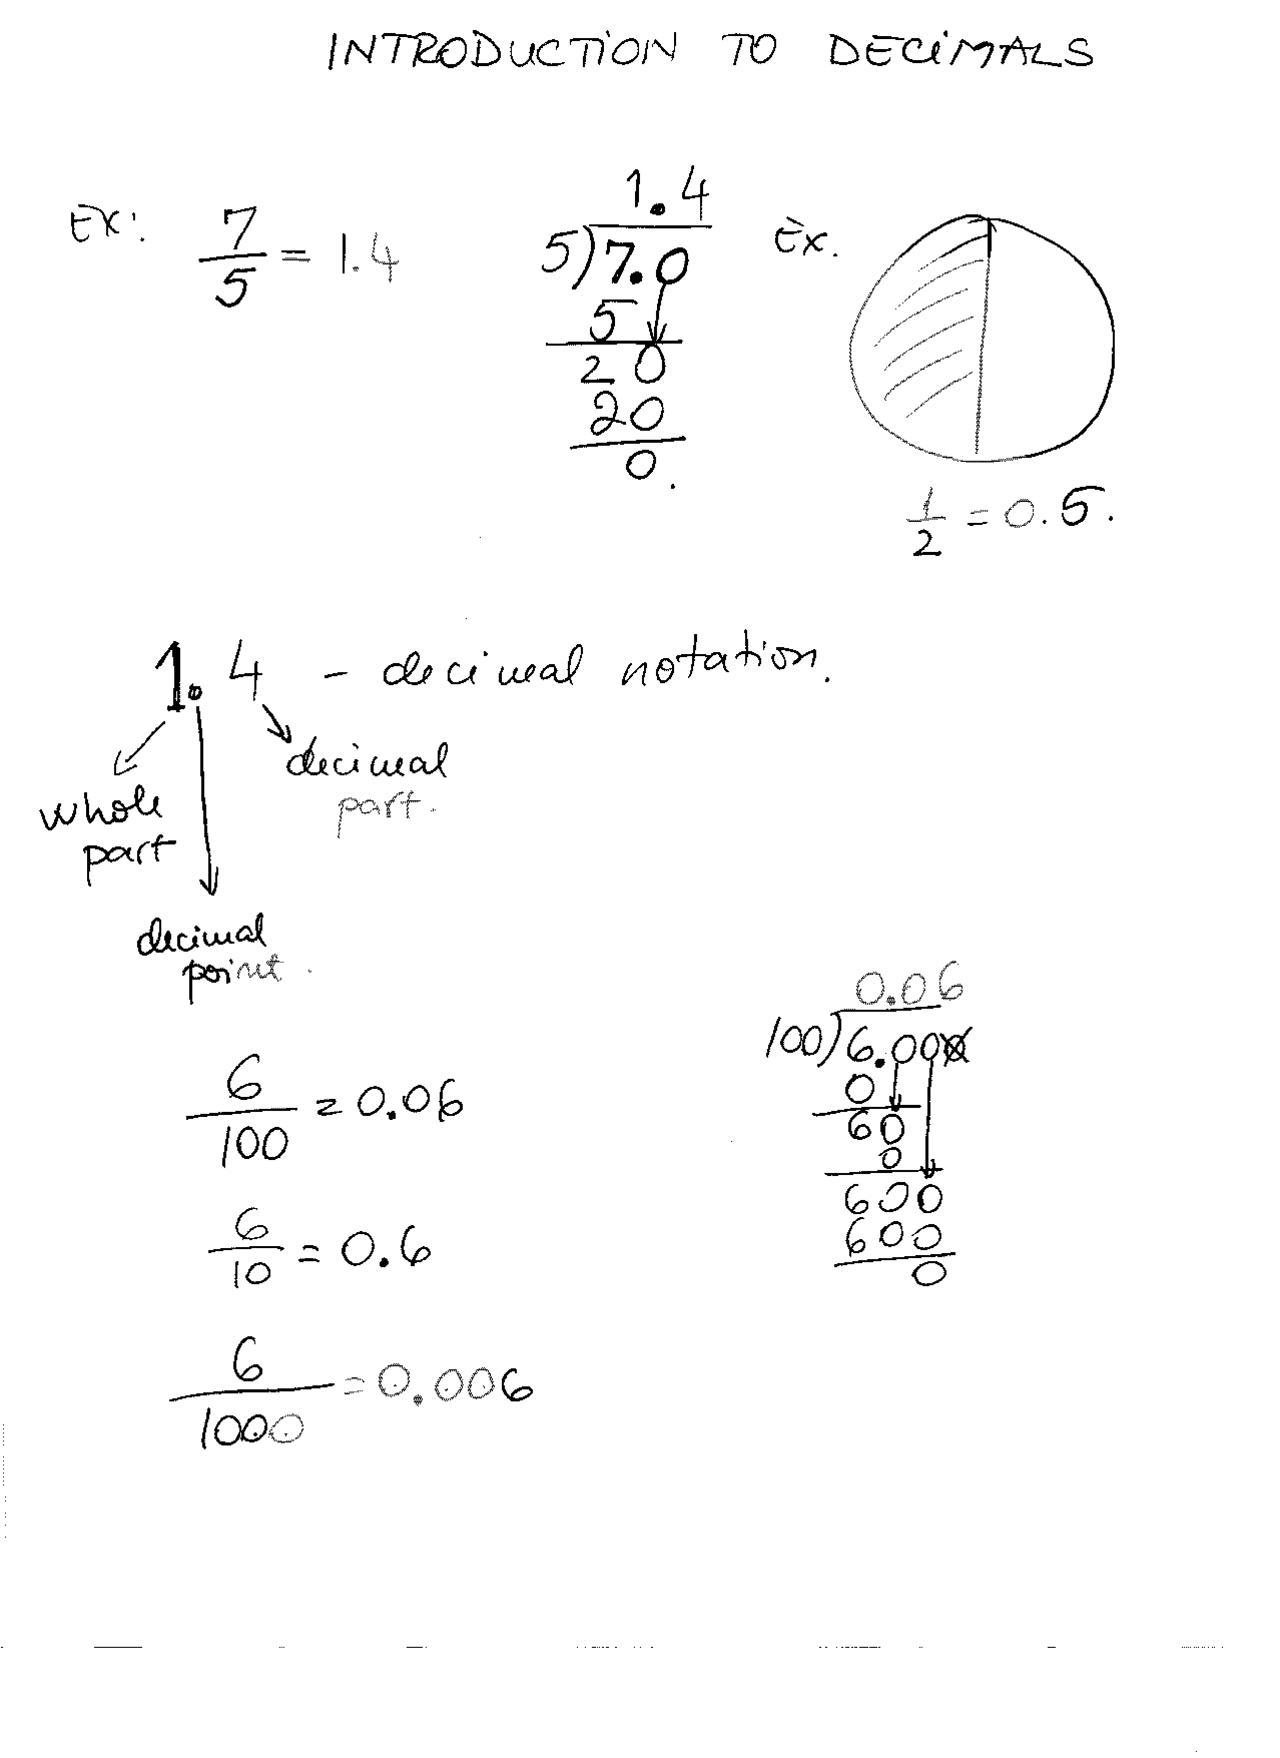 INTRODUCTION TO DECIMALS
Ex: 7/5 = 1.4
1.4
5)7.0
5
20
20
0.
Ex.
1/2 = 0.5.
1.4 - decimal notation.
whole part
decimal point.
decimal part.
6/100 = 0.06
6/10 = 0.6
6/1000 = 0.006
0.06
100)6.000
0
60
0
600
600
0